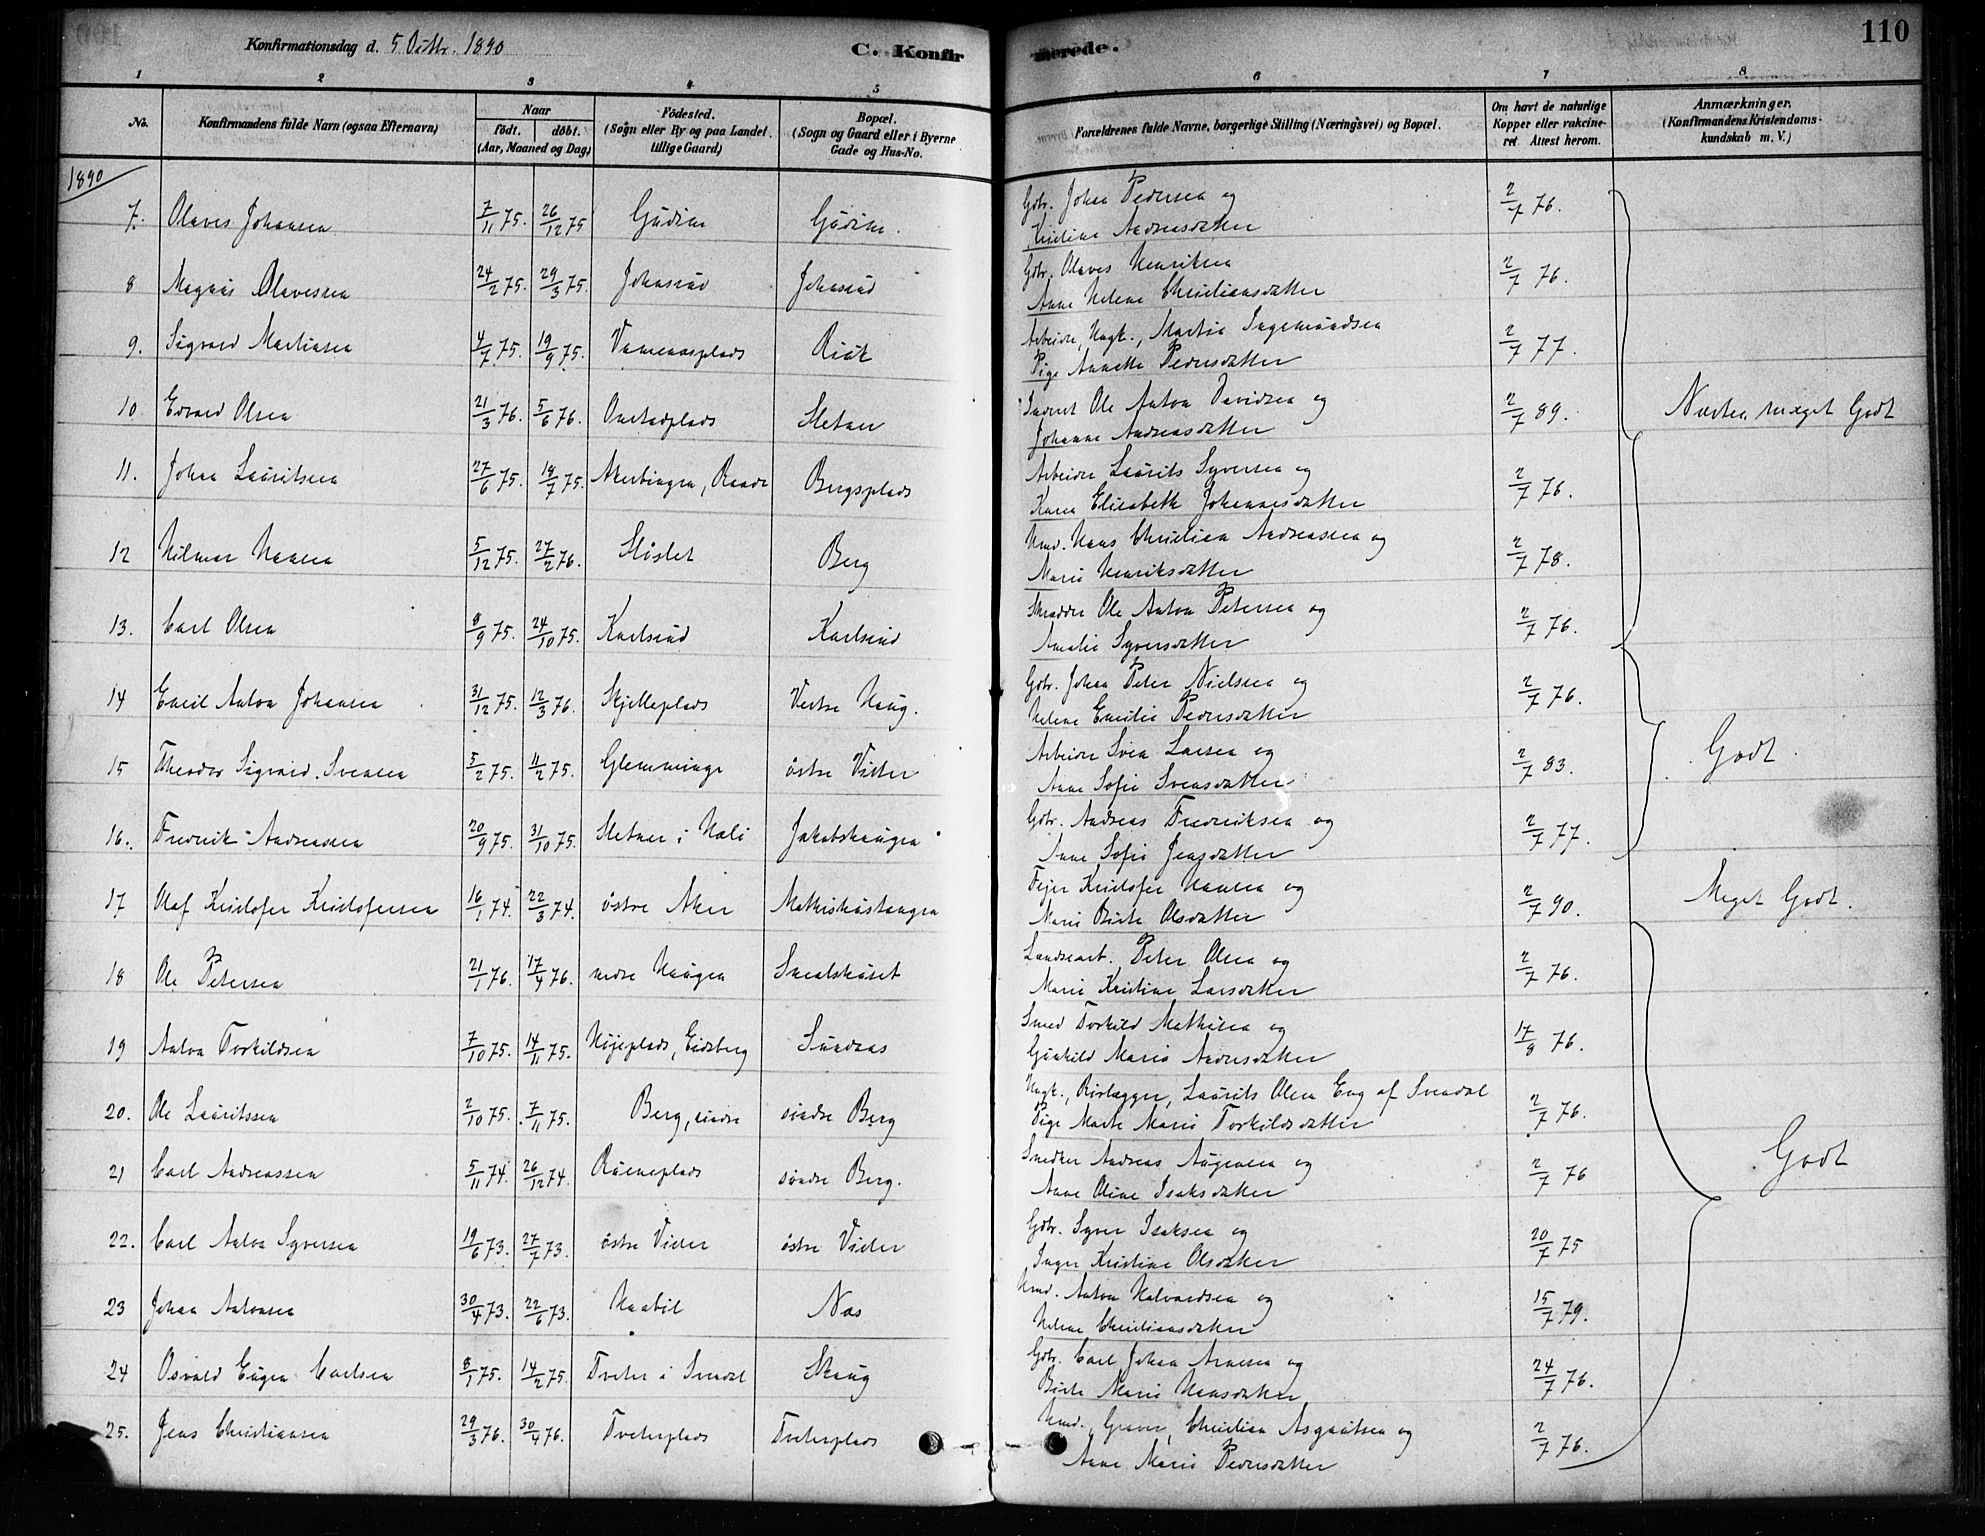 Konfirmationsdag d. 5 Octbr. 1890
C. Konfirmerede.
110
1 2 3 4 5 6 7 8
No.
Konfirmandens fulde Navn (ogsaa Efternavn)
Naar
født. døbt.
(Aar, Maaned og Dag)
Fødested.
(Sogn eller By og paa Landet tillige Gaard)
Bopæl.
(Sogn og Gaard eller i Byerne Gade og Hus-No.
Forældrenes fulde Navne, borgerlige Stilling (Næringsvei) og Bopæl.
Om havt de naturlige Kopper eller vakcineret Attest herom.
Anmærkninger.
(Konfirmandens Kristendomskundskab m. V.)
1890
7. Olaves Johansen 7/11 75. 26/12 75 Gudim Gudim. Gbr. Johan Pedersen og
Kristine Andreasdatter 2/7 76.
8 Magnus Olavessen 24/2 75. 29/3 75. Johnsrud Johnsrud Gbr. Olaves Henriksen
Anne Helene Christiansdatter 2/7 76.
9. Sigvard Martinsen 4/7 75. 19/9 75. Arbeider, Ungk., Martin Ingemundsen
Pige Annette Pedersdatter 2/7 77.
10 Edvard Olsen 21/3 76. 5/6 76. Onstadplads Sletner Inderst Ole Anton Davidsen og
Johanne Andreasdatter 2/7 89. Næsten meget Godt
11. Johan Lauritsen 27/6 75. 18/7 75. Akerbingen, Raade Bergsplads Arbeider Laurits Syversen og
Karen Elisabeth Johannesdatter 2/7 76.
12 Hilmar Hansen 5/12 75. 27/2 76. Berg Hmd. Hans Christian Andreassen og
Marie Henriksdatter 2/7 78.
13. Carl Olsen 8/9 75. 24/10 75. Karlsrud Karlsrud Skrædder Ole Anton Petersen og
Amalie Syversdatter 2/7 76.
14 Emil Anton Johansen 31/12 75. 12/3 76. Skjelleplads Vestre Haug. Gbr. Johan Peter Nielsen og
Helene Emilie Pedersdatter 2/7 76.
15 Theodor Sigvard Svensen 5/2 75. 11/2 75. Glemminge østre Vister Arbeider Sven Larsen og
Anne Sofie Svensdatter 2/7 83. Godt.
16. Fredrik Andreassen 20/9 75. 31/10 75. Sletner i Hæli Jakobshaugen Gbr. Andreas Fredriksen og
Anne Sofie Jensdatter 2/7 77.
17 Olaf Kristofer Kristofersen 16/1 74. 22/3 74. østre Aker Mathishustangen Fejer Kristofer Hansen og
Marie Birte Olsdatter 2/7 90. Meget Godt.
18 Ole Petersen 21/1 76. 17/4 76. nedre Haugen Smedshuset Peter Olsen og
Marie Kristine Larsdatter 2/7 76.
19 Anton Torkildsen 7/10 75. 14/11 75. Højeplads, Eidsberg Sundaas Smed Torkild Mathisen og
Gunhild Marie Andersdatter 17/8 76.
20. Ole Lauritssen 2/10 75. 7/11 75. Berg, søndre søndre Berg Ungk., Laurits Olsen Eng af Svendal
Pige Marte Marie Torkildsdatter 2/7 76.
21 Carl Andreassen 5/11 74. 26/12 74. søndre Berg. Snedker Andreas Augensen og
Anne Oline Isaksdatter 2/7 76 Godt
22. Carl Anton Syversen 19/6 73. 27/7 73. østre Vister østre Vister Gbr. Syver Isaksen og
Inger Kristine Olsdatter 20/7 75
23 Johan Antonsen 30/4 73. 22/6 73. Haabøl Næs Hmd. Anton Halvardsen og
Helene Christiansdatter 15/7 79.
24 Osvald Eugen Carlsen 8/1 75. 14/2 75. Tveter i Svindal Skaug Gbr. Carl Johan Arnesen og
Birte Marie Hansdatter 24/7 76.
25. Jens Christiansen 29/3 76. 30/4 76. Tveterplads Tveterplads Hmd., Graver, Christian Asgautsen og
Anne Marie Pedersdatter 2/7 76.